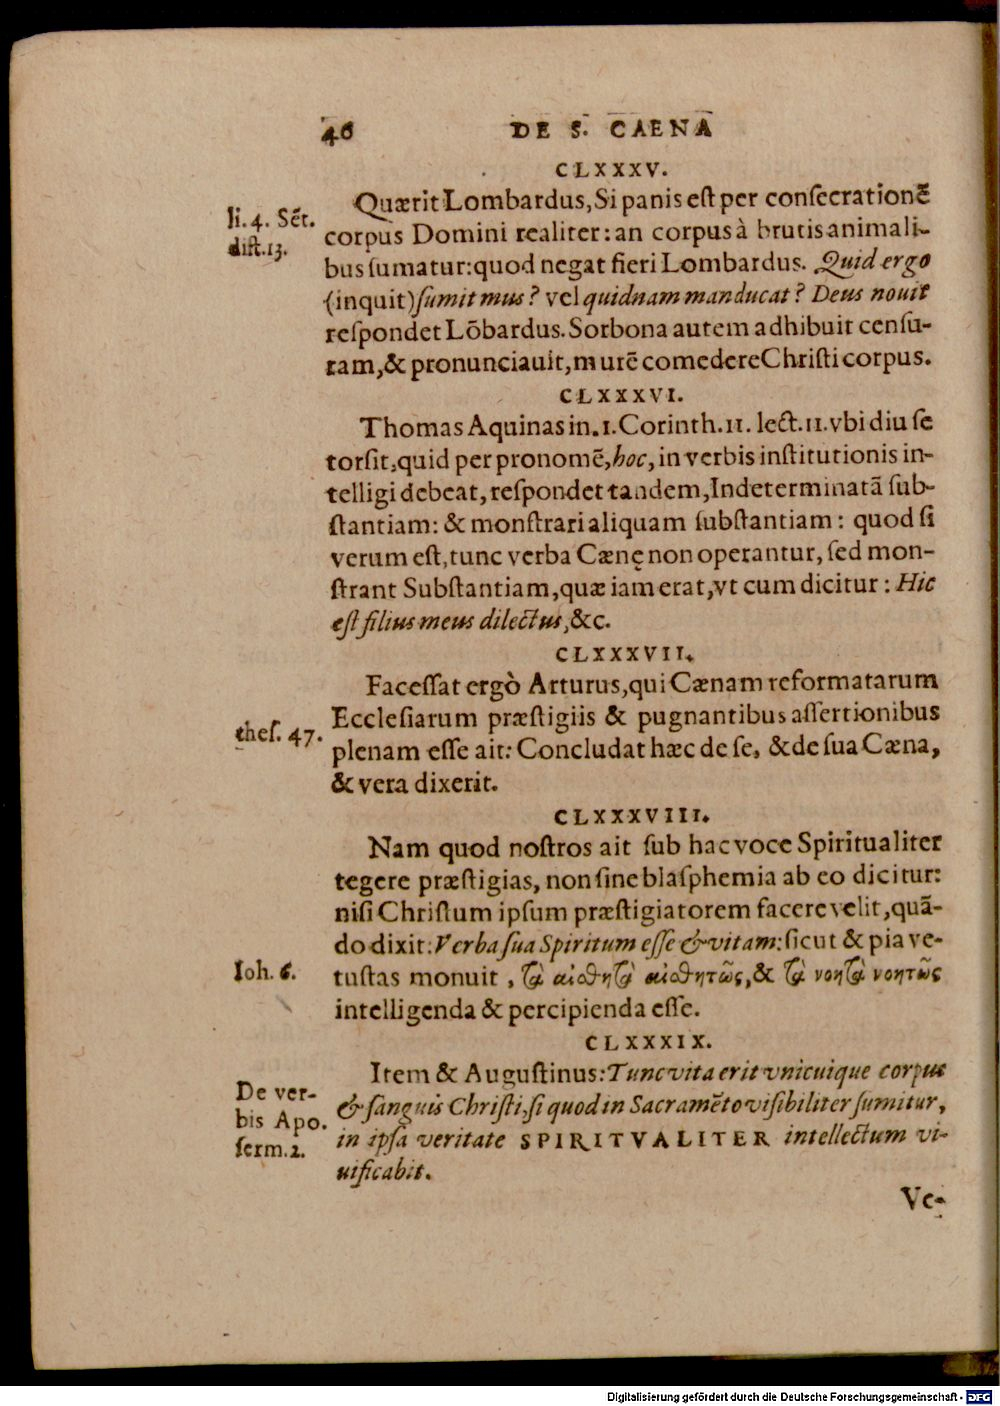 46 DE S. CAENA
CLXXXV.
Quærit Lombardus, Si panis eſt per conſecrationẽ
li. 4. Sẽt.
diſt. 13.
corpus Domini realiter: an corpus à brutis animali-
bus ſumatur: quod negat fieri Lombardus. Quid ergo
(inquit) ſumit mus? vel quidnam manducat? Deus nouit
reſpondet Lõbardus. Sorbona autem adhibuit cenſu-
ram, & pronunciauit, murẽ comedere Chriſti corpus.
CLXXXVI.
Thomas Aquinas in. 1. Corinth. 11. lect. 11. vbi diu ſe
torſit, quid per pronomẽ, hoc, in verbis inſtitutionis in-
telligi debeat, reſpondet tandem, Indeterminatã ſub-
ſtantiam: & monſtrari aliquam ſubſtantiam: quod ſi
verum eſt, tunc verba Cænę non operantur, ſed mon-
ſtrant Subſtantiam, quæ iam erat, vt cum dicitur: Hic
eſt filius meus dilectus, &c.
CLXXXVII.
Faceſſat ergò Arturus, qui Cænam reformatarum
Eccleſiarum præſtigiis & pugnantibus aſſertionibus
theſ. 47.
plenam eſſe ait: Concludat hæc de ſe, & de ſua Cæna,
& vera dixerit.
CLXXXVIII.
Nam quod noſtros ait ſub hac voce Spiritualiter
tegere præſtigias, non ſine blaſphemia ab eo dicitur:
niſi Chriſtum ipſum præſtigiatorem facere velit, quã-
do dixit: Verba ſua Spiritum eſſe & vitam: ſicut & pia ve-
Ioh. 6.
tuſtas monuit, τὰ αἰσθητὰ αἰσθητῶς, & τὰ νοητὰ νοητῶς
intelligenda & percipienda eſſe.
CLXXXIX.
Item & Auguſtinus: Tunc vita erit vnicuique corpus
De ver-
bis Apo.
ſerm. 2.
& ſanguis Chriſti, ſi quod in Sacramẽto viſibiliter ſumitur,
in ipſa veritate SPIRITVALITER intellectum vi-
uificabit.
Ve-
Digitalisierung gefördert durch die Deutsche Forschungsgemeinschaft - DFG